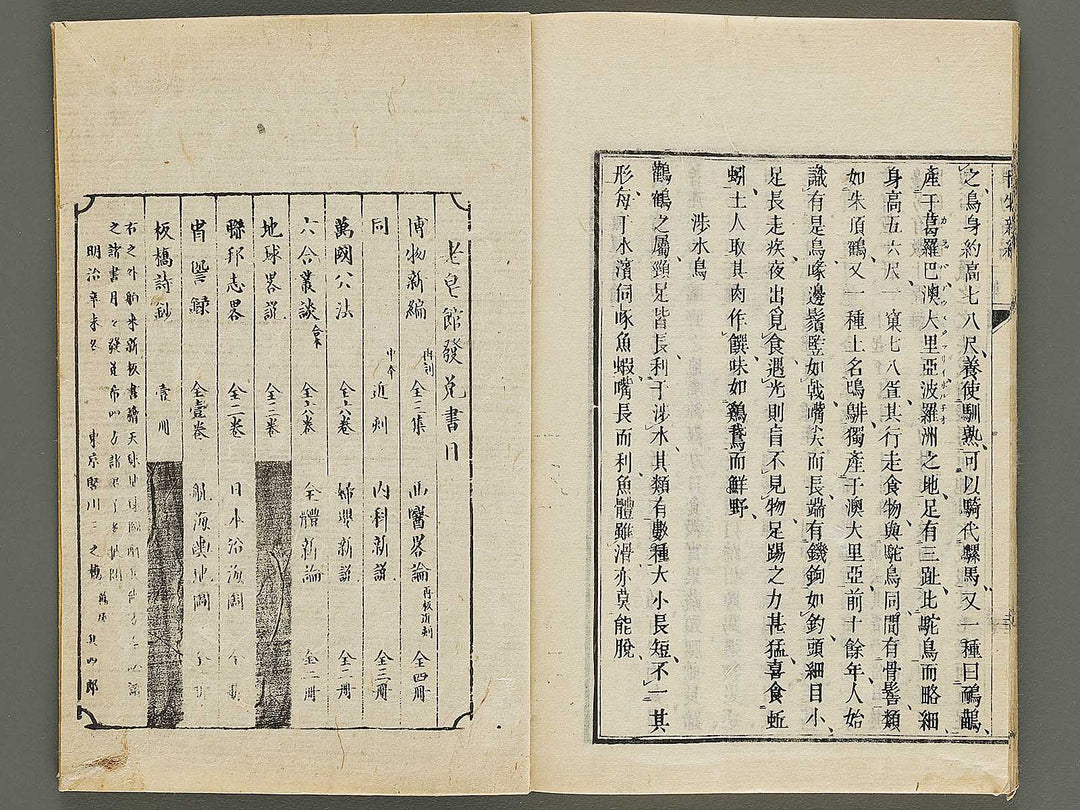 之鳥身約高七八尺養使馴熟可以騎代騾馬又一種曰鴯鶓
產于葛羅巴澳大里亞波羅洲之地足有三趾比駝鳥而略細
身高五六尺一窠七八疍其行走食物與駝鳥同間有骨髻類
如朱頂鶴又一種土名鴟鴸獨產于澳大里亞前十餘年人始
識有是鳥喙邊鬚豎如戟嘴尖而長端有鐖鉤如釣頭細目小
足長走疾夜出覓食遇光則盲不見物足踢之力甚猛喜食蚯
蚓土人取其肉作饌味如鷄鵞而鮮野
涉水鳥
鸛鶴之屬頸足皆長利于涉水其類有數種大小長短不一其
形每于水濱伺啄魚蝦嘴長而利魚體雖滑亦莫能脫
老皂館發兌書目
博物新編 再刻 全三集 西醫畧論 再板近刻 全四冊
同 中本 近刻 內科新說 全三冊
萬國公法 全六卷 婦嬰新說 全二冊
六合叢談 全六卷 全體新論 全二冊
地球畧說 全三卷
聯邦志畧 全二卷 日本沿海圖
全壹卷 航海
板橋詩鈔 壹冊
右之外 新板書
之諸書
明治辛未冬 東京竪川三之橋 四郎